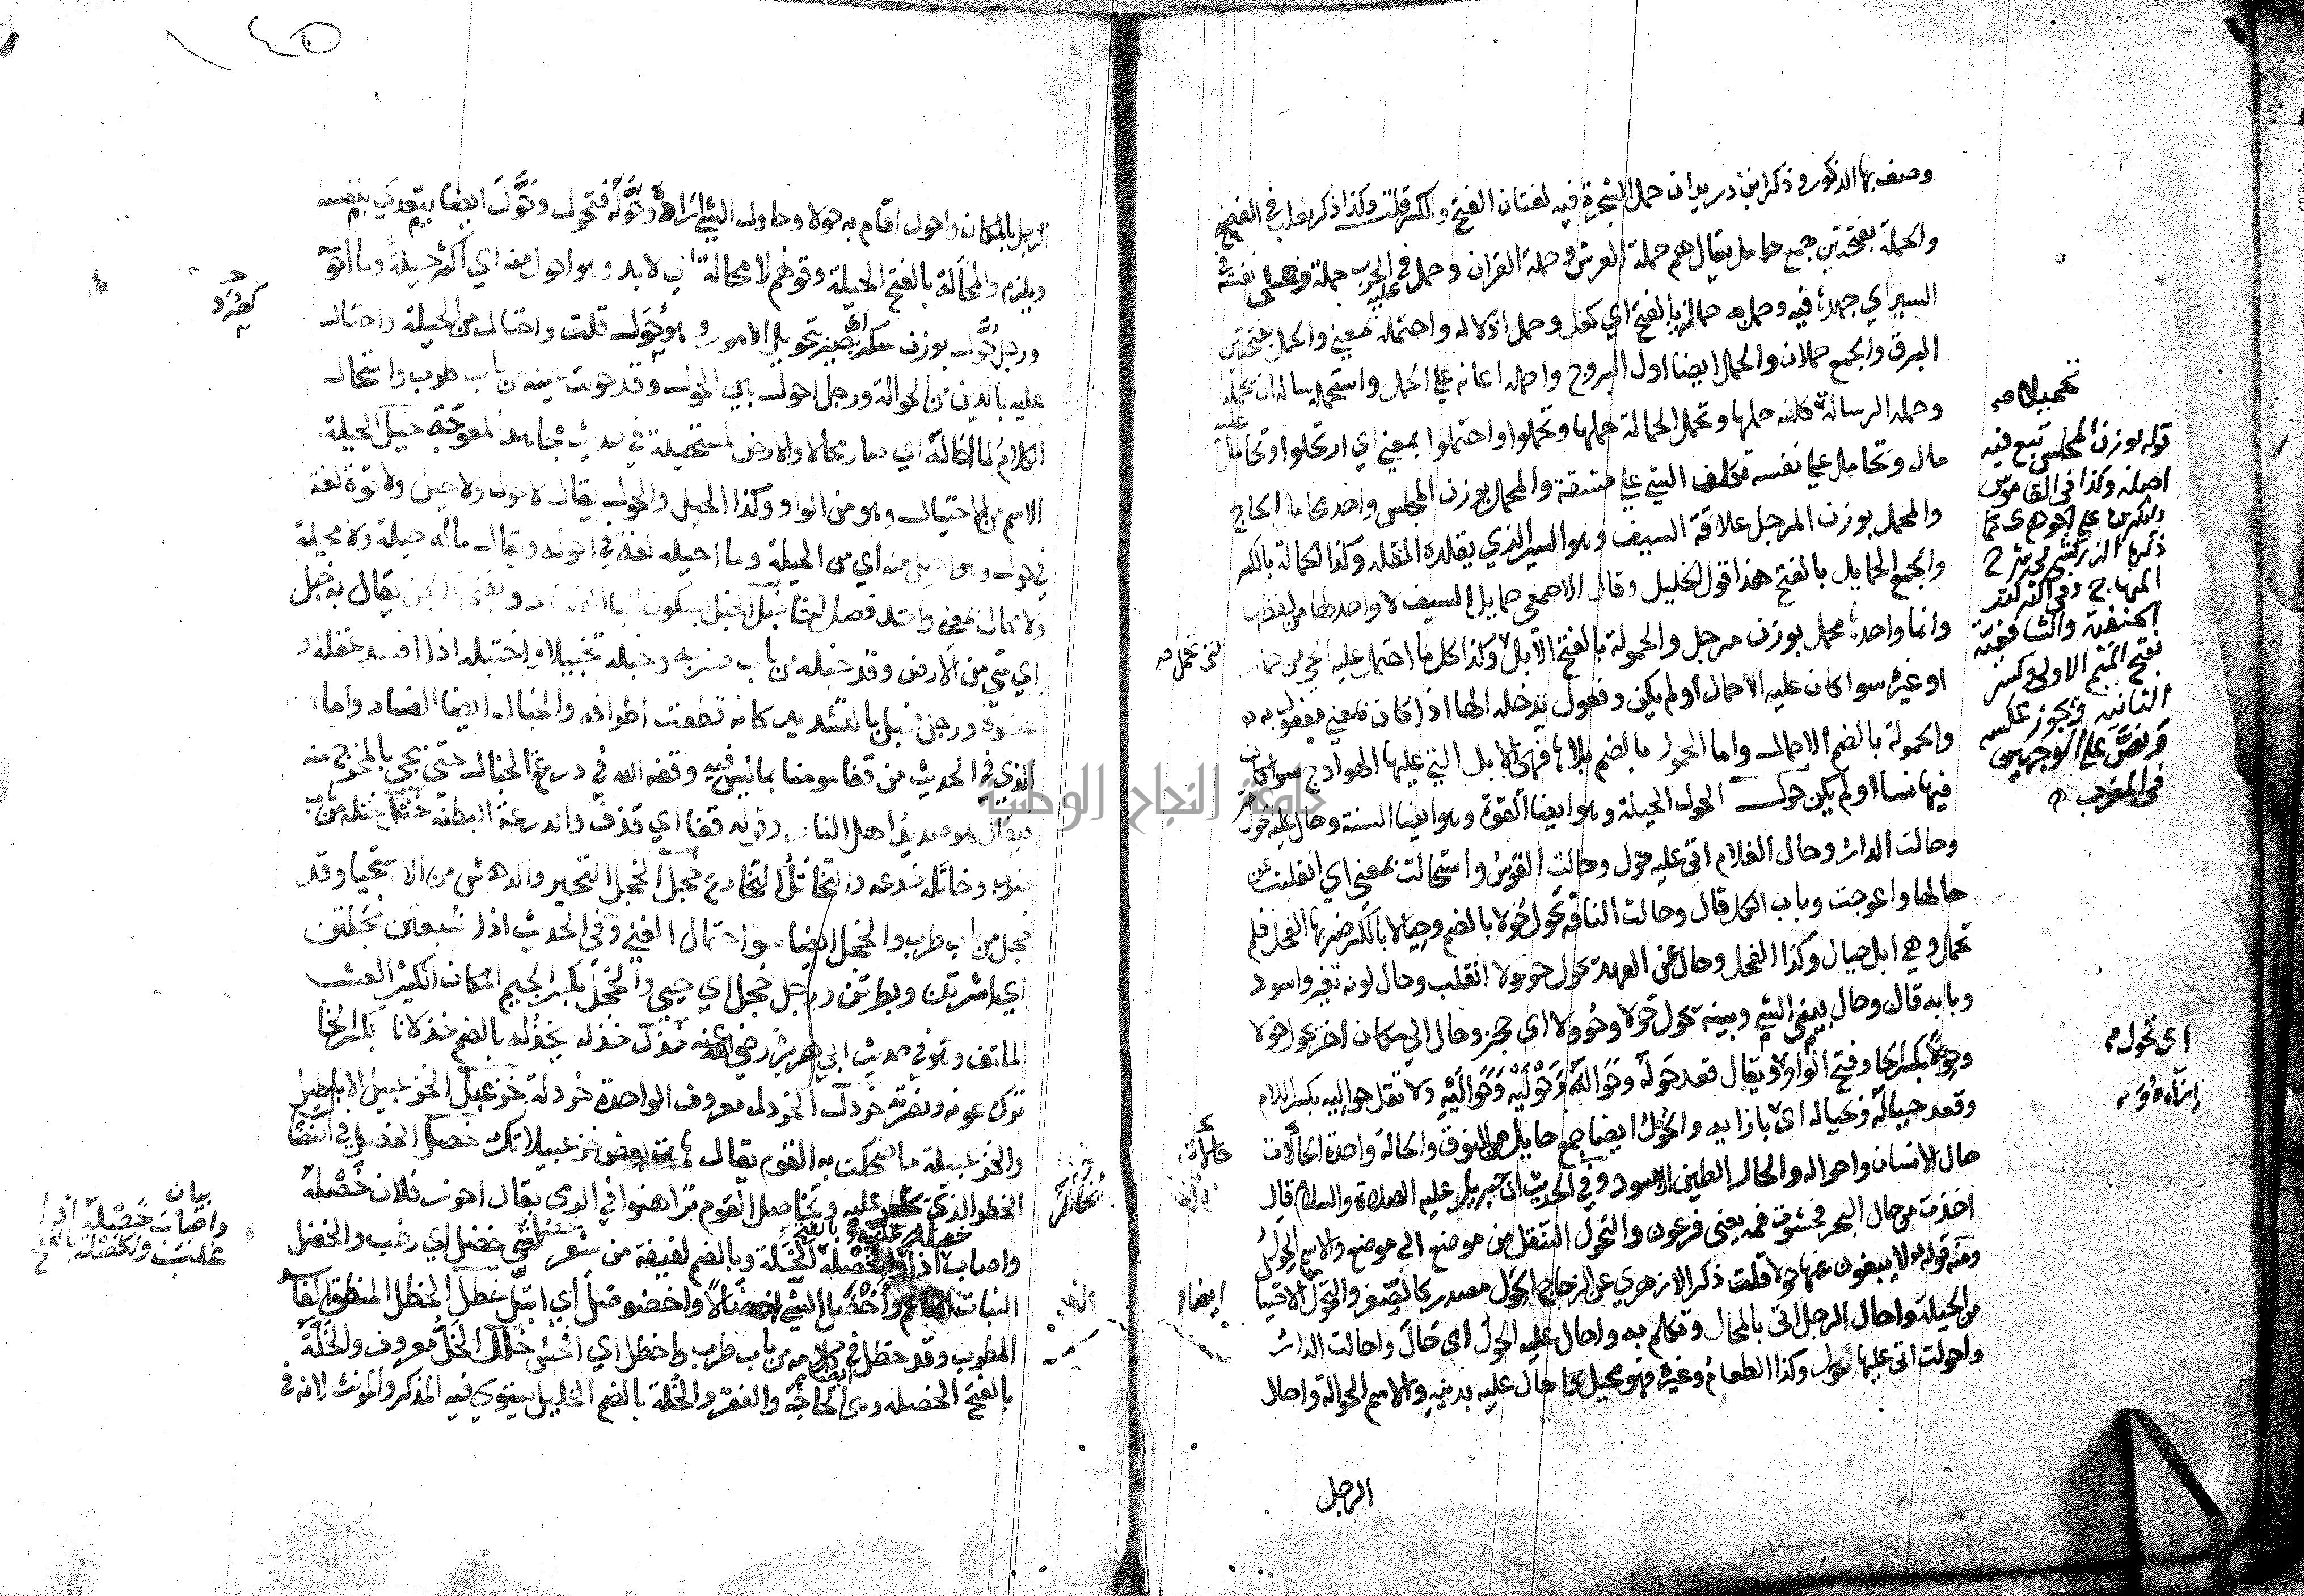 وصف بها الذكور وذكر ابن دريد ان حمل الشجرة فيه لغتان الفتح والكسر قلت وكذا ذكر ثعلب في الفصيح
والحملة بفتحتين جمع حامل يقال هم حملة العرش وحملة القران وحمل عليه في الحرب حملة وحمل على نفسه في
السير اي جهدها فيه وحمل به حمالة بالفتح اي كفل وحمل ادلاله واحتمله بمعنى والحمل بفتحتين
البرق والجمع حملان والحمل ايضا اول البروج واحمله اعانه على الحمل واستحمله ساله ان يحمله
وحمله الرسالة كلفه حملها وتحمل الحمالة حملها وتحملوا واحتملوا بمعنى اي ارتحلوا وتحامل عليه
مال وتحامل على نفسه تكلف الشي على مشقة والمحمل بوزن المجلس واحد محامل الحاج
والمحمل بوزن المرجل علاقة السيف وهو السير الذي يقلده المتقلد وكذا الحمالة بالكسر
والجمع الحمايل بالفتح هذا قول الخليل وقال الاصمعي حمايل السيف لا واحد لها من لفظها
وانما واحدها محمل بوزن مرجل والحمولة بالفتح الابل وكذا كل ما احتمل عليه الحي من حمار
او غيره سوا كان عليه الاحمال او لم يكن وفعول تدخله الها اذا كان بمعنى مفعول به
والحمولة بالضم الاحمال واما الحمول بالضم بلا ها فهي الابل التي عليها الهوادج سوا كان
فيها نسا او لم يكن حول الحول الحيلة وهو ايضا القوة وهو ايضا السنة وحال عليه الحول
وحالت الدار وحال الغلام اتى عليه حول وحالت القوس واستحالت بمعنى اي انقلبت عن
حالها واعوجت وباب الكل قال وحالت الناقة تحول حولا بالضم وحيالا بالكسر ضربها الفحل فلم
تحمل وهي ابل حيال وكذا الفحل وحال عن العهد تحول حوولا انقلب وحال لونه تغير واسود
وبابه قال وحال بيني الشي وبينه تحول حولا وحوولا اي حجز وحال الى مكان اخر تحول حولا
وحولا بكسر الحا وفتح الواو ويقال قعد حوله وحواله وحوليه وحواليه ولا تقل حواليه بكسر اللام
وقعد حياله وبحياله اي بازايه والحول ايضا جمع حايل من النوق والحالة واحدة الحالات
حال الانسان واحواله والحال الطين الاسود وفي الحديث ان جبريل عليه الصلاة والسلام قال
اخذت من حال البحر فحشوت فمه يعني فرعون والتحول التنقل من موضع الى موضع والاسم الحول
ومنه قوله لا يبغون عنها حولا قلت ذكر الازهري عن الزجاج الحول مصدر كالصغر والتحول الاحتيال
من الحيلة واحال الرجل اتى بالمحال وتكلم به واحال عليه الحول اي حال واحالت الدار
واحولت اتى عليها حول وكذا الطعام وغيره فهو محيل واحال عليه بدينه والاسم الحوالة واحال
الرجل
قوله بوزن المجلس تبع فيه
اصله وكذا في القاموس
ذكره الزركشي في شرح
المنهاج وفي
الحنفية والشافعية
بفتح الميم الاولى وكسر
الثانية ويجوز عكسه
ونص على الوجهين
في المغرب
اي تحول
١٤٥
الرجل بالمكان واحول اقام به حولا وحاول الشي اراده وحوله فتحول وحول ايضا يتعدي بنفسه
ويلزم والمحالة بالفتح الحيلة وقولهم لا محالة اي لا بد وهو احول منه اي اكثر حيلة وما احوله
ورجل حول بوزن سكر اي بصير بتحويل الامور وهو حول قلت واحتال من الحيلة واحتال
عليه بالدين من الحوالة ورجل احول بين الحول وقد حولت عينه من باب طرب واستحال
الكلام لما احاله اي صار محالا والارض المستحيلة في حديث مجاهد المعوجة حيل الحيلة
الاسم من الاحتيال وهو من الواو وكذا الحيل والحول يقال لا حول ولا حيل ولا قوة لغة
في حول وهو احيل منه اي من الحيلة وما احيله لغة في احوله ويقال ماله حيلة ولا محيلة
ولا محال بمعنى واحد فصل الخا خبل الخبل بسكون البا الفساد وبفتحها الجن يقال به خبل
اي شي من الارض وقد خبله من باب ضرب وخبله تخبيلا واختبله اذا افسد عقله او
عضوه ورجل مخبل بالتشديد كانه قطعت اطرافه والخبال ايضا الفساد واما
الذي في الحديث من قفا مومنا بما ليس فيه وقفه الله في ردغة الخبال حتى يجي بالمخرج منه
فيقال هو صديد اهل النار وقوله قفا اي قذف والردغة الطينة ختل ختله من باب
ضرب وخاتله خدعه والتخاتل التخادع خجل الخجل التحير والدهش من الاستحيا وقد
خجل من باب طرب والخجل ايضا سو احتمال الغنى وفي الحديث اذا شبعتن خجلتن
اي اشرتن وبطرتن ورجل خجل اي حيي والخجل بكسر الجيم المكان الكثير العشب
الملتف وهو في حديث ابي هريرة رضي الله عنه خذل خذله يخذله بالضم خذلانا بكسر الخا
ترك عونه ونصرته خردل الخردل معروف الواحدة خردلة خزعبل الخزعبيل الاباطيل
والخزعبيلة ما اضحكت به القوم يقال هات بعض خزعبيلاتك خصل الخصل في النضال
الخطر الذي يخاطر عليه وتخاصل القوم تراهنوا في الرمي يقال احرز فلان خصله
واصاب خصله اذا غلب والخصلة بالفتح الخلة وبالضم لفيفة من شعر خضل شي خضل اي رطب والخضل
النبات الناعم واخضل الشي اخضلالا واخضوضل اي ابتل خطل الخطل المنطق الفاسد
المضطرب وقد خطل في كلامه من باب طرب واخطل اي افحش خلل الخل معروف والخلة
بالفتح الخصلة وهي ايضا الحاجة والفقر والخلة بالضم الخليل يستوي فيه المذكر والمونث لانه في
بيان
واصاب خصلة اذا
غلب والخصلة بالفتح
جامعة النجاح الوطنية